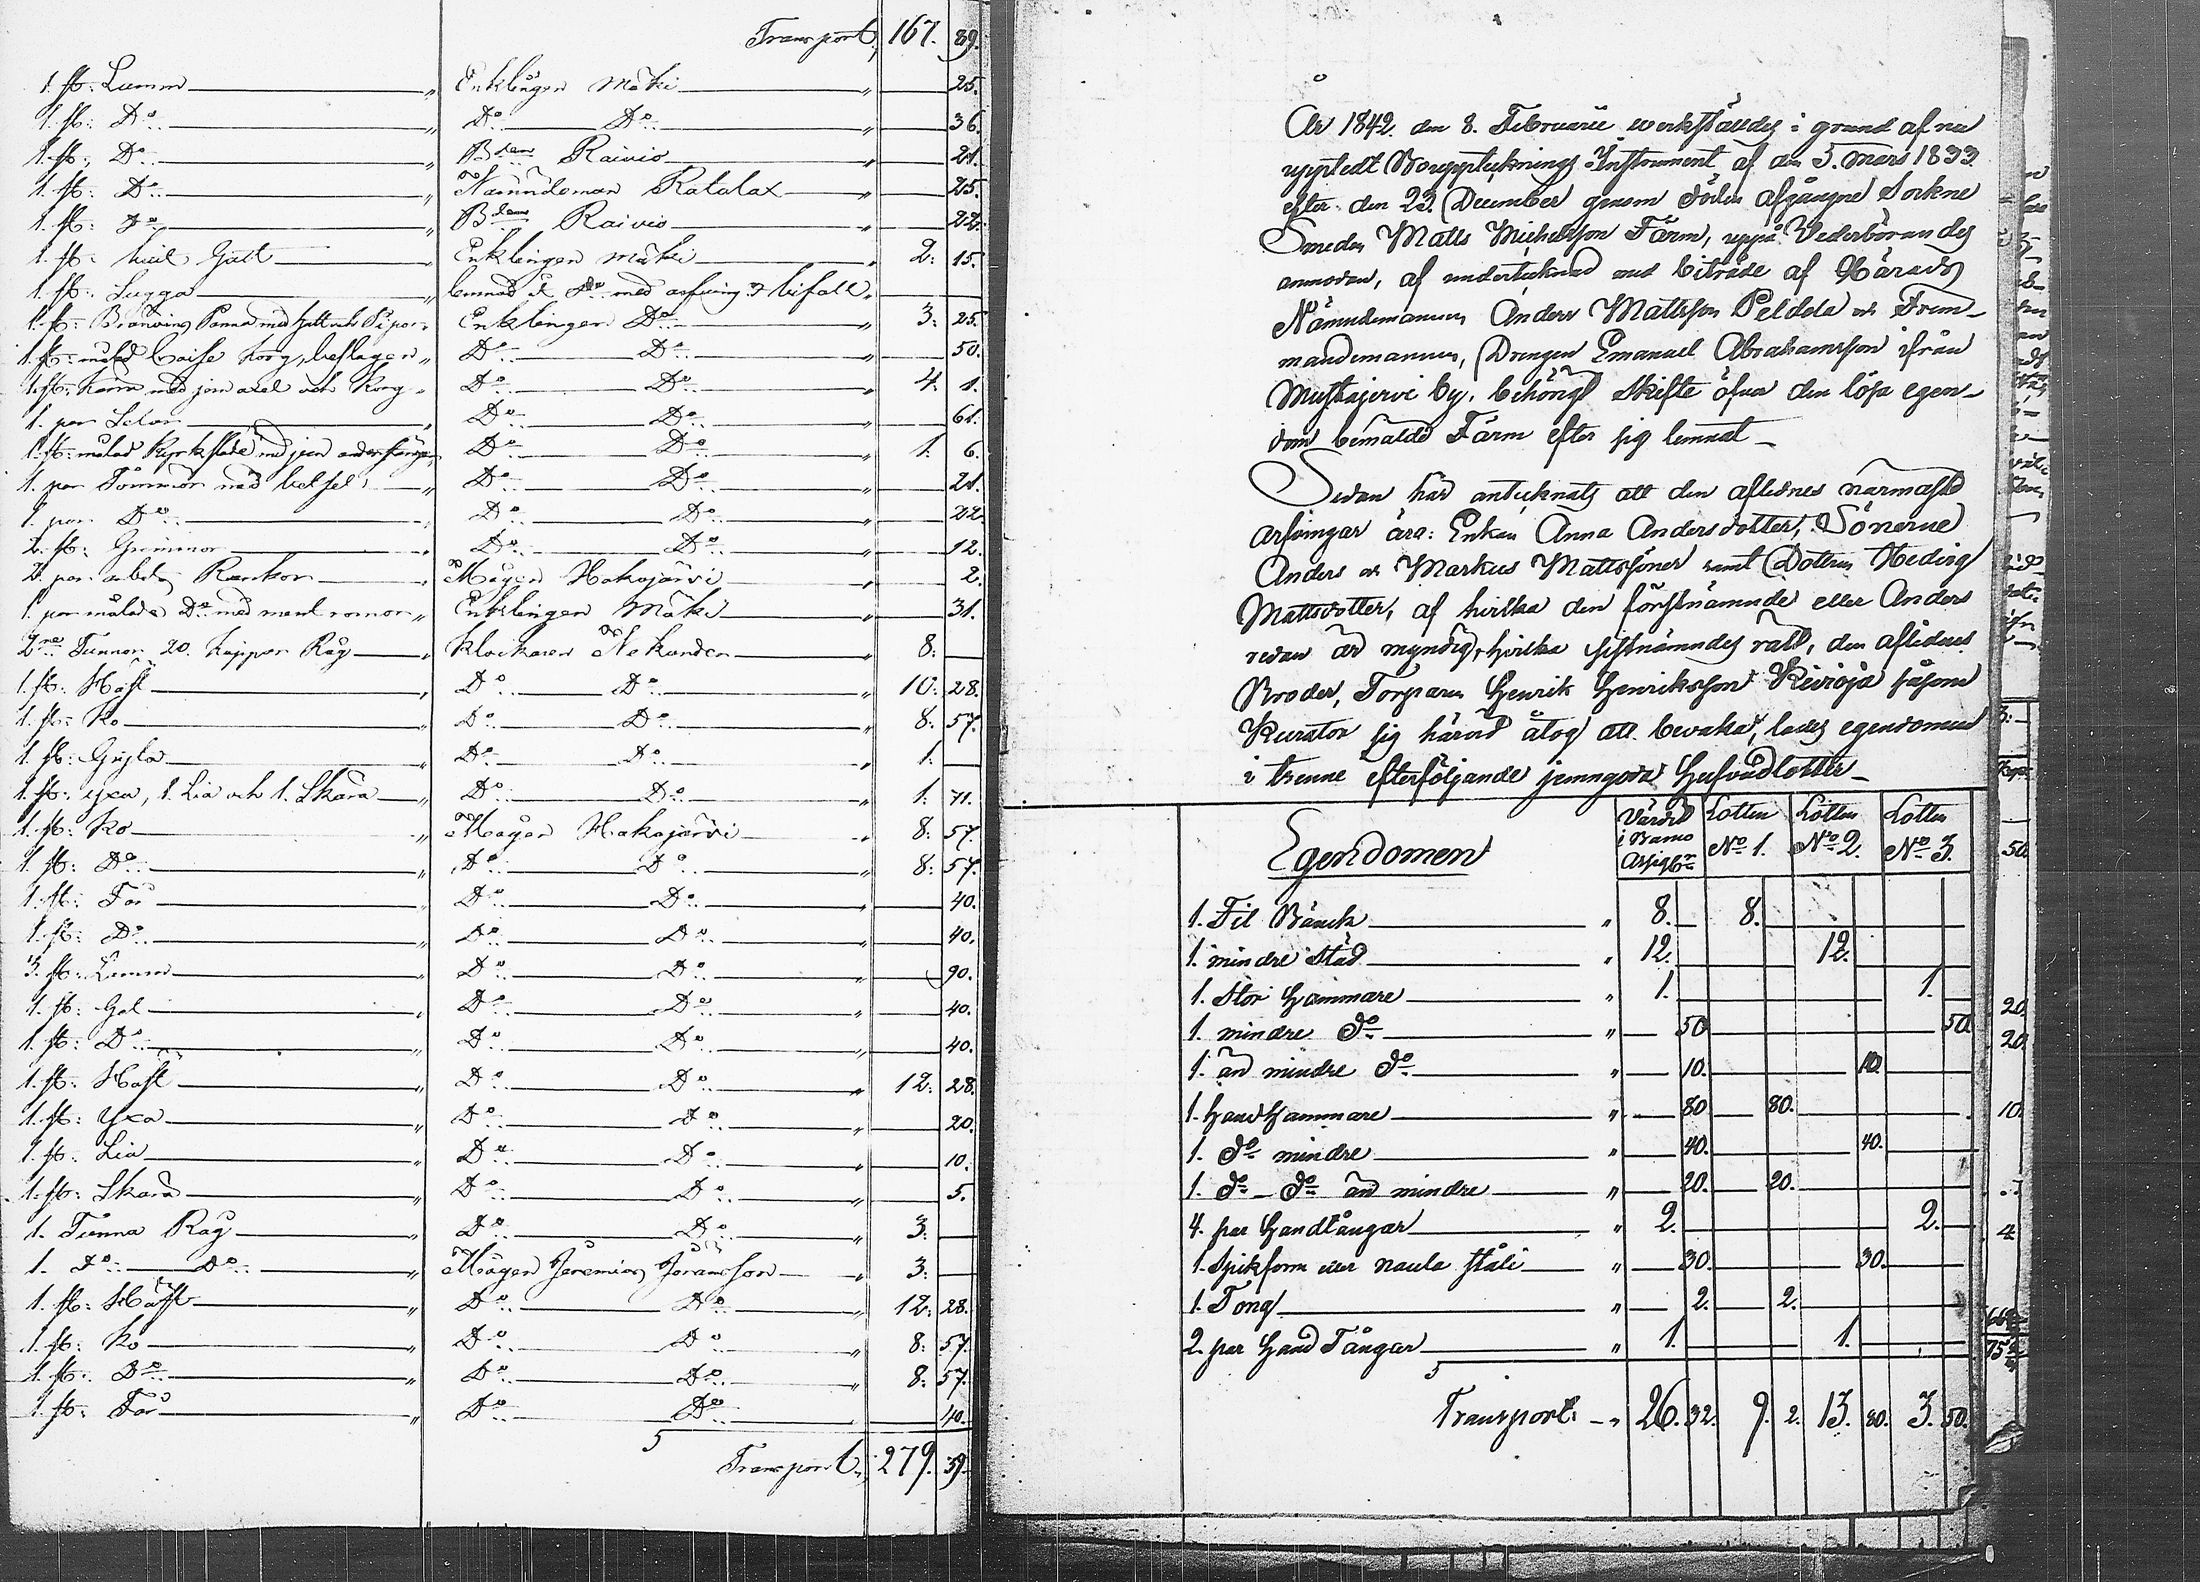 Transport, 167. 89.
1. st: Lamm „ Enklingen Mäki „ 25.
1. st: Do „ Do Do „ 36.
1. st: Do „ Bden Raivio „ 21.
1. st: Do „ Nämndeman Ratalax „ 25.
1. st: Do „ Bden Raivio „ 22.
1. st: Galt „ Enklingen Mäki „ 2: 15.
1. st. Sugga „ lemnad å Do med bifall „
1. st: Bränvins Panna med hatt och Pipor „ Enklingen Do „ 3: 25.
1. st: målad korg, beslagen „ Do Do „ 50.
1. st: kärra med jern axel och Korg „ Do Do „ 4. 1.
1. par Selar „ Do Do „ 61.
1. st: målad Kyrksläde med jern „ Do Do „ 1. 6.
1. par Tömmar med betsel „ Do Do „ 21.
1. par Do „ Do Do „ 22.
2. st: Grimmor „ Do Do „ 12.
2. par arbets Rankor „ Mågen Hakojärvi „ 2.
1. par målade Do med „ Enklingen Mäki „ 31.
2ne Tunnor 20. kappor Råg „ Klockaren „ 8:
1. st: Häst „ Do Do „ 10: 28.
1. st: Ko „ Do Do „ 8: 57.
1. st: „ Do Do „ 1.
1. st: yxa, 1. Lia och 1. Skära „ Do Do „ 1: 71.
1. st: Ko „ Mågen Hakojärvi „ 8: 57.
1. st: Do „ Do Do „ 8: 57.
1. st: Får „ Do Do „ 40.
1. st: Do „ Do Do „ 40.
3. st: Lamm „ Do Do „ 90.
1. st: Galt „ Do Do „ 40.
1. st: Do „ Do Do „ 40.
1. st: Häst „ Do Do „ 12: 28.
1. st: yxa „ Do Do „ 20.
1. st: Lia „ Do Do „ 10.
1. st: Skära „ Do Do „ 5.
1. Tunna Råg „ Do Do „ 3:
1. Do Do „ Mågen Jeremias „ 3:
1. st: Häst „ Do Do „ 12: 28.
1. st: Ko „ Do Do „ 8: 57.
1. st: Do „ Do Do „ 8: 57.
1. st: Får „ Do Do „ 40.
Transport, 279. 39.
År 1842 den 8. Februarii werkställdes i grund af nu
uppledt Bouppteknings Instrument af den 5. mars 1833
efter den 23. December genom döden afgångne Sockne
Smeden Matts Michelsson Färm, uppå Vederbörandes
anmodan, af undertecknad med biträde af Härads
Nämndemannen Anders Mattsson Peldola och Frem-
mandemannen, Drengen Emanuel Abrahamsson ifrån
Mustajervi by, behörigt Skifte öfver den lösa egen-
dom bemälde Färm efter sig lemnat_
Sedan har antecknats att den aflidnes närmaste
arfvingar äro: Enkan Anna Andersdotter, Sönerne
Anders och Markus Mattssöner samt Dottren Hedvig
Mattsdotter, af hvilka den förstnämnde eller Anders
redan är myndig, hvilka sistnämndes rätt, den aflidnes
Broder, Torparen Henrik Henriksson Kivioja såsom
Kurator sig härvid åtog att bevaka, lades egendomen
i trenne efterföljande jemngoda Hufvudlotter_
Egendomen Värdet i Banco Assigner Lotten No 1. Lotten No 2. Lotten No 3.
1. Fil Bänck „ 8. 8.
1. mindre Städ „ 12. 12.
1. Stor Hammare „ 1. 1.
1. mindre do „ 50 50.
1. än mindre do „ 10. 10.
1. Handhammare „ 80 80.
1. do mindre „ 40. 40.
1. do do än mindre „ 20. 20.
4. par Handtångar „ 2. 2.
1. Spikform eller naula ståli „ 30. 30.
1. Tong „ 2. 2.
2. par Hand Tångar „ 1. 1.
Transport „ 26. 32. 9. 2. 13. 80. 3. 50.